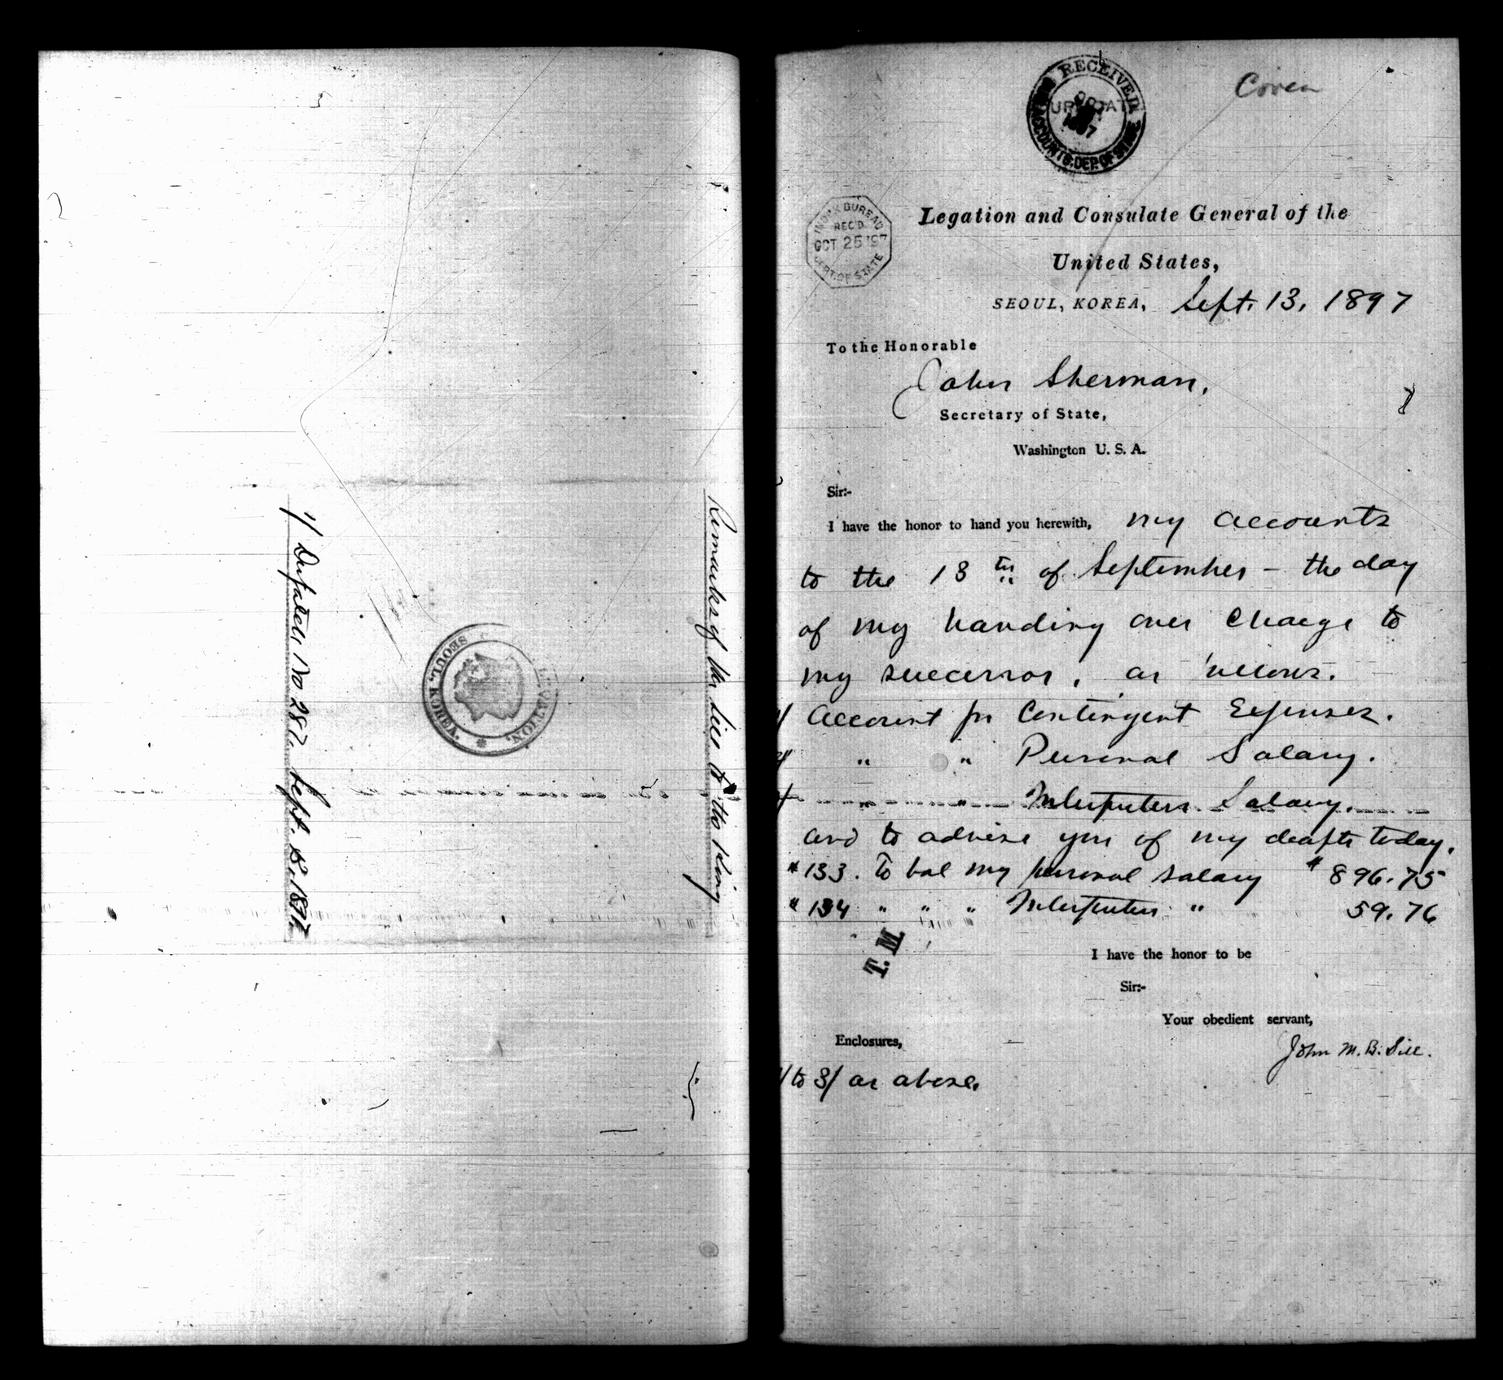 Remarks of Mr Sill to the King
1/ Dispatch No 287, Sept. 13, 1897
LEGATION,
SEOUL, KOREA.
RECEIVED
1897
ACCOUNTS. DEP. OF STATE
Corea
INDEX BUREAU
REC'D.
OCT 25 '97
DEPT. OF STATE
Legation and Consulate General of the
United States,
SEOUL, KOREA, Sept. 13, 1897
To the Honorable
John Sherman,
Secretary of State,
Washington U. S. A.
Sir:-
I have the honor to hand you herewith, my accounts
to the 13th of September - the day
of my handing over charge to
my successor, as follows.
1/ Account for Contingent Expenses.
2/ " " Personal Salary.
3/ " " Interpreters Salary.
and to advise you of my drafts today,
# 133. To bal my personal salary $ 896.75
" 134 " " " Interpreters " 59.76
T. M
I have the honor to be
Sir:-
Your obedient servant,
John M. B. Sill.
Enclosures,
1/ to 3/ as above.